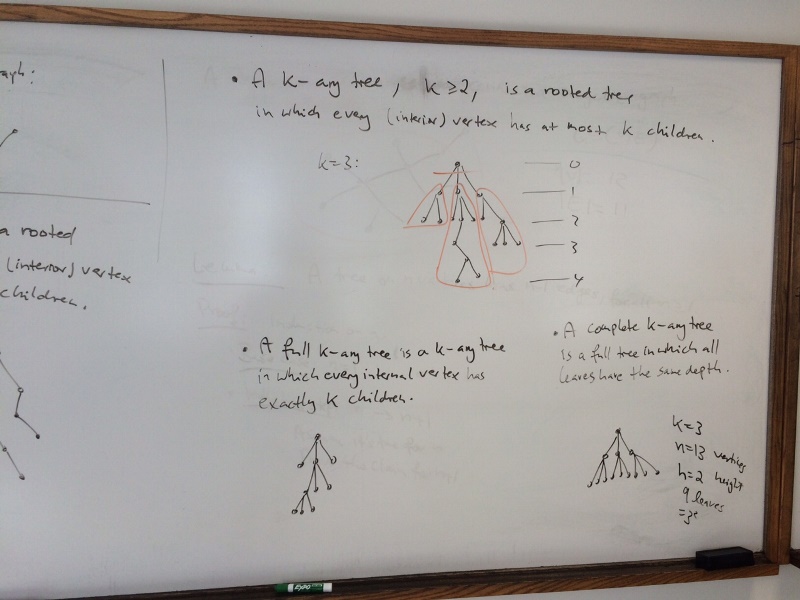 raph:
a rooted
(interior) vertex
children.
• A k-ary tree, k≥2, is a rooted tree
in which every (interior) vertex has at most k children.
k=3:
0
1
2
3
4
• A full k-ary tree is a k-ary tree
in which every internal vertex has
exactly k children.
• A complete k-ary tree
is a full tree in which all
leaves have the same depth.
k=3
n=13 vertices
h=2 height
9 leaves
EXPO